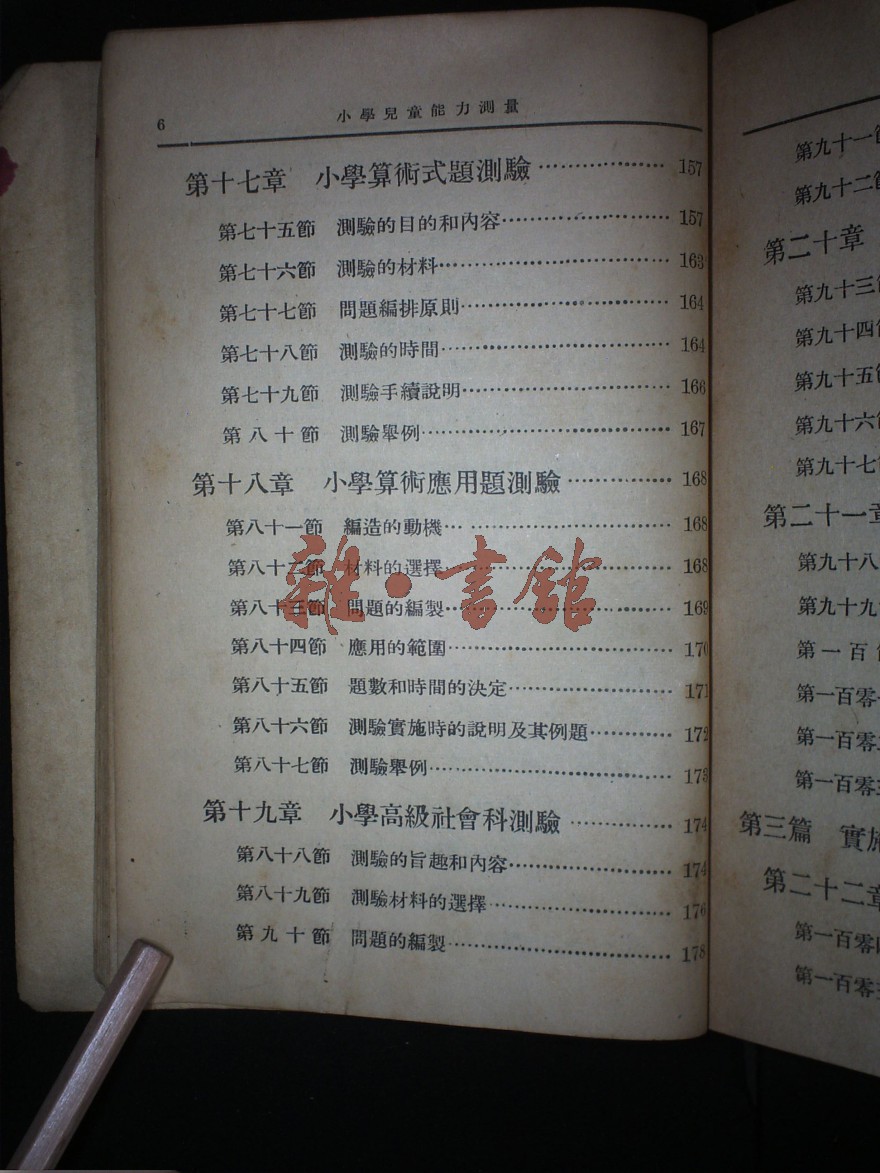 6
小學兒童能力測量
第十七章 小學算術式題測驗 157
第七十五節 測驗的目的和內容 157
第七十六節 測驗的材料 163
第七十七節 問題編排原則 164
第七十八節 測驗的時間 164
第七十九節 測驗手續說明 166
第八十節 測驗舉例 167
第十八章 小學算術應用題測驗 168
第八十一節 編造的動機 168
第八十二節 材料的選擇 168
第八十三節 問題的編製 169
第八十四節 應用的範圍 170
第八十五節 題數和時間的決定 171
第八十六節 測驗實施時的說明及其例題 172
第八十七節 測驗舉例 173
第十九章 小學高級社會科測驗 174
第八十八節 測驗的旨趣和內容 174
第八十九節 測驗材料的選擇 176
第九十節 問題的編製 178
雜·書館
第九十一節
第九十二節
第二十章
第九十三節
第九十四節
第九十五節
第九十六節
第九十七節
第二十一章
第九十八
第九十九
第一百
第一百零
第一百零
第一百零
第三篇 實施
第二十二章
第一百零
第一百零